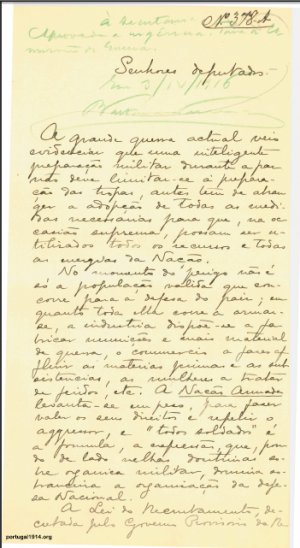 Nº 378-A
À Secretaria.
Aprovada a urgencia. Para a co-
missão de Guerra.
Senhores deputados:
Em 3/IV/916
A grande guerra actual veio
evidenciar que uma inteligente
preparação militar durante a paz
não deve limitar-se á prepara-
ção das tropas, antes tem de abran-
ger a adopção de todas as medi-
das necessarias para que, na oc-
casião suprema, possam ser u-
tilizados todos os recursos e todas
as energias da Nação.
No momento do perigo não é
só a população valida que con-
corre para a defesa do paiz; em-
quanto toda ella corre a armar-
se, a industria dispõe-se a fa-
bricar munições e mais material
de guerra, o commercio a fazer af-
fluir as materias primas e as sub-
sistencias, as mulheres a tratar
de feridos, etc. A Nação Armada
levanta-se em peso, para fazer
valer os seus direitos e repelir o
aggressor, e "todos soldados" é
a formula, a expressão que, pon-
do de lado velhas doutrinas so-
bre organica militar, domina so-
branceira a organisação da defe-
sa Nacional.
A Lei do Recrutamento, de-
cretada pelo Governo Provisorio da Re
portugal1914.org